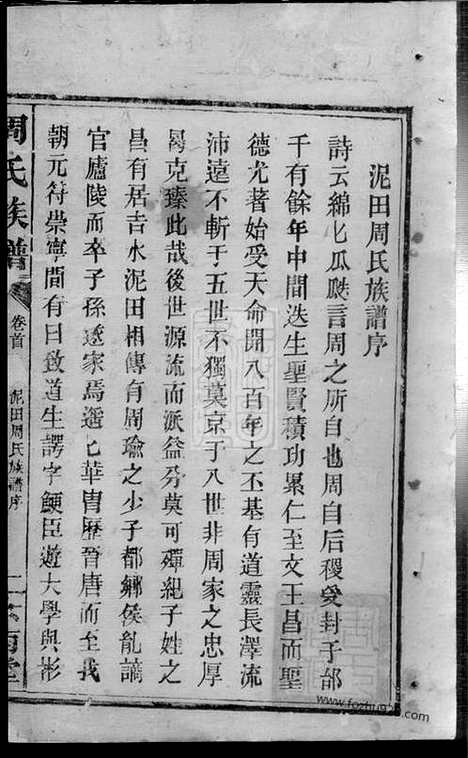 泥田周氏族譜序
詩云綿匕瓜瓞言周之所自也周自后稷受封于邰
千有餘年中間迭生聖賢積功累仁至文王昌而聖
德尤著始受天命開八百年之丕基有道靈長澤流
沛遠不斬于五世不獨莫京于八世非周家之忠厚
曷克臻此哉後世源流而派益分莫可殫紀子姓之
昌有居吉水泥田相傳有周瑜之少子都鄉侯胤謫
官廬陵而卒子孫遂家焉遥匕華胄歷晉唐而至我
朝元符崇寧間有曰敦道生諤字鯁臣遊大學與彬
周氏族譜
卷首
泥田周氏族譜序
二
雨堂
www.fozhu920.com